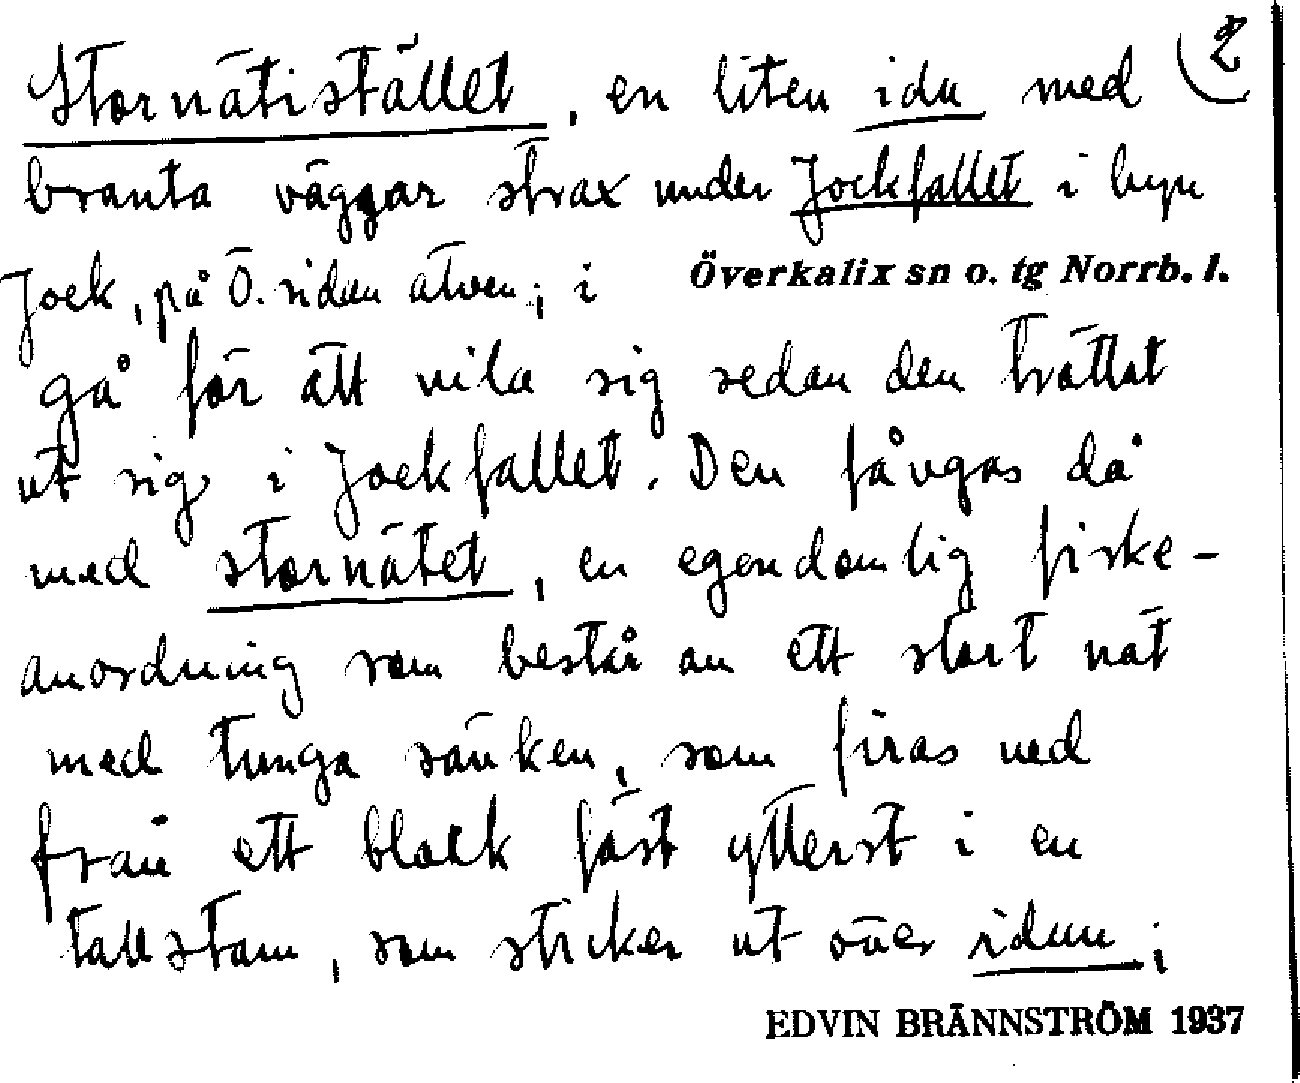 Stornätistället, en liten idu med (2
branta väggar strax under Jockfallet i byn
Jock, på Ö. sidan älven; i Överkalix sn o. tg Norrb. l.
gå för att vila sig sedan den tröttat
ut sig i Jockfallet. Den fångas då
med stornätet, en egendomlig fiske-
anordning som består av ett stort nät
med tunga sänken, som firas ned
från ett block fäst ytterst i en
tallstam, som sticker ut över idun;
EDVIN BRÄNNSTRÖM 1937